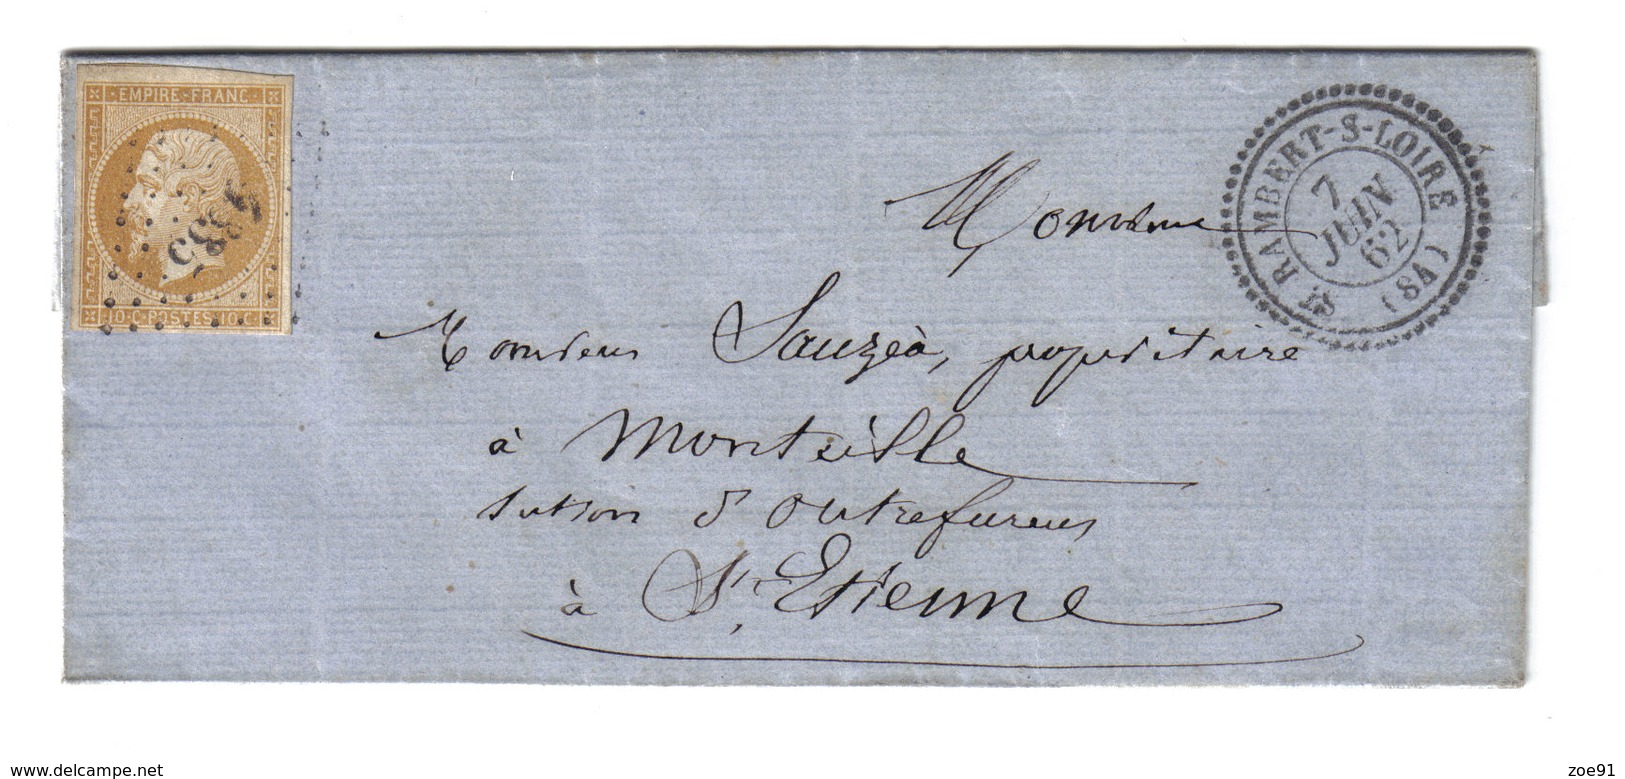 EMPIRE-FRANC
10·C·POSTES·10·C
ST RAMBERT-S-LOIRE
7
JUIN
62
(84)
Monsieur
Monsieur Sauzéa, propriétaire
à Monteille
section d'outrefurens
à St. Etienne
www.delcampe.net
zoe91